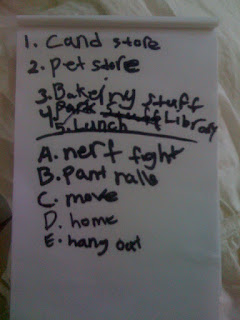 1. Cand store
2. Pet store
3. Bakering stuff
4. Park stuff Library
5. Lunch
A. nerf fight
B. Pant nalls
C. move
D. home
E. hang out